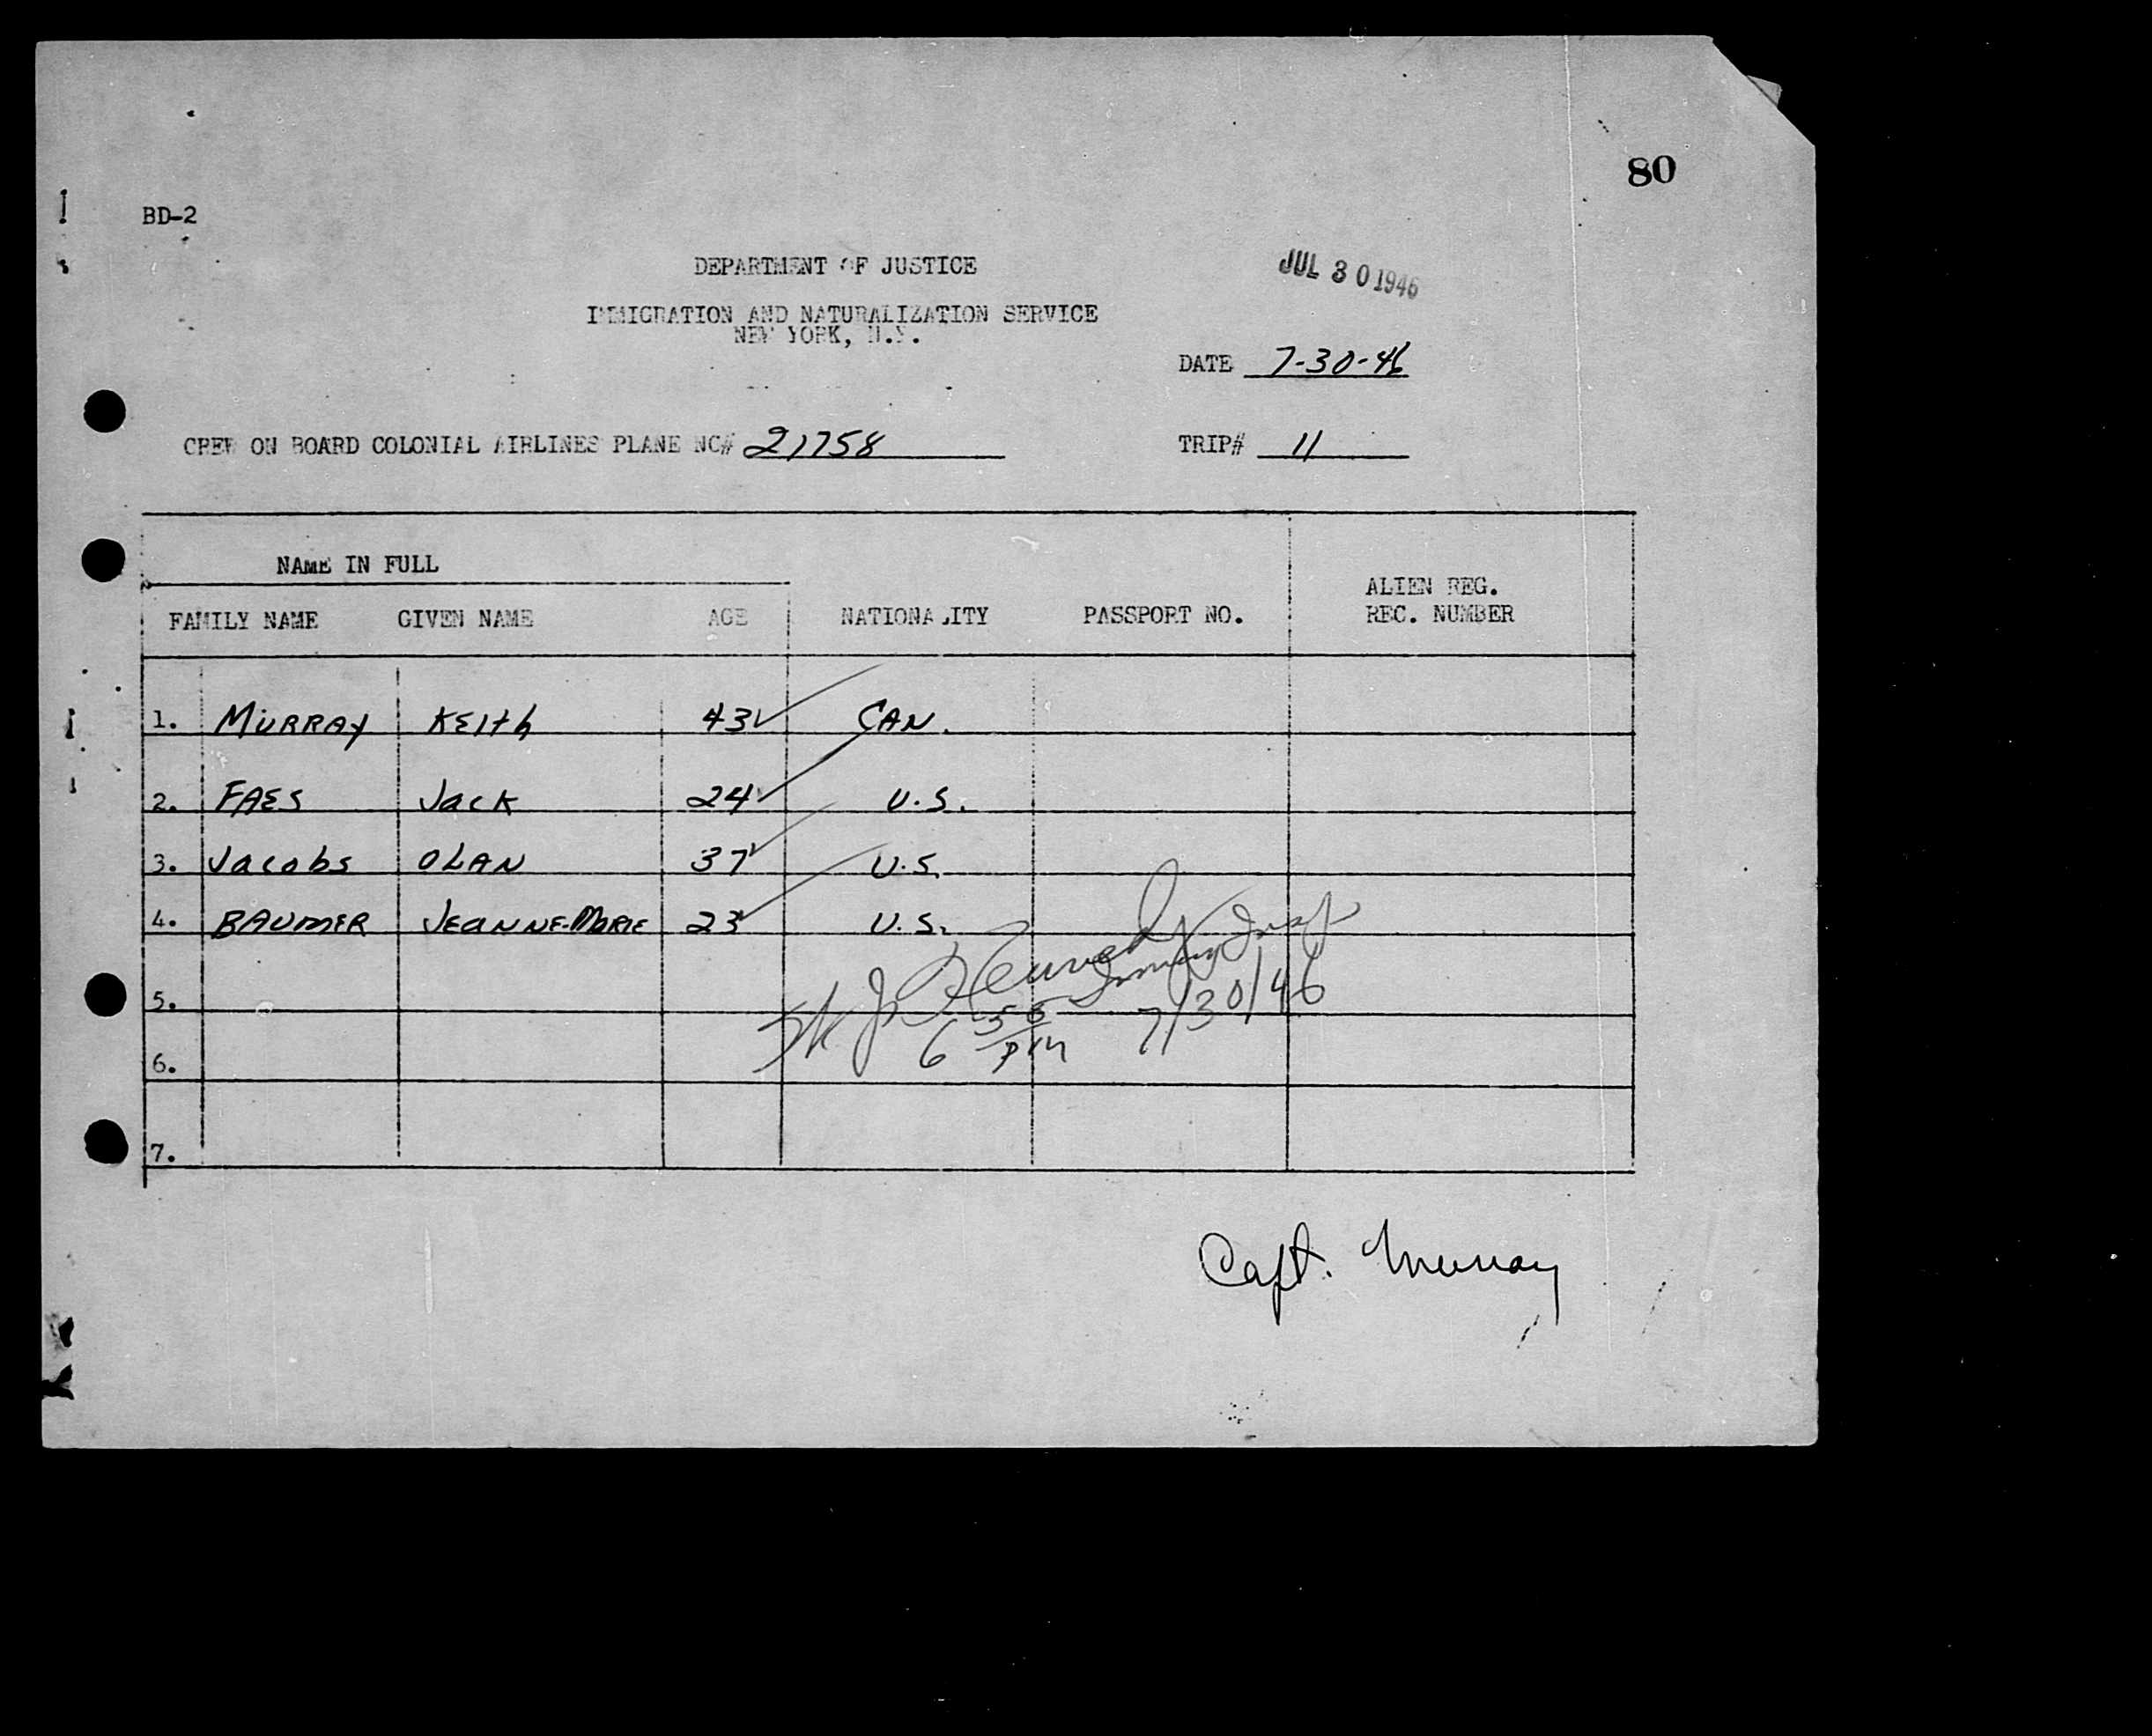 80
BD-2
DEPARTMENT OF JUSTICE
JUL 30 1946
IMMIGRATION AND NATURALIZATION SERVICE
NEW YORK, N.Y.
DATE 7-30-46
CREW ON BOARD COLONIAL AIRLINES PLANE NC# 21758
TRIP# 11
NAME IN FULL
FAMILY NAME GIVEN NAME AGE NATIONALITY PASSPORT NO. ALIEN REG. REC. NUMBER
1. MURRAY KEITH 43 CAN.
2. FAES JACK 24 U.S.
3. Jacobs OLAN 37 U.S.
4. BAUMER JEANNE-MARIE 23 U.S.
J. Kennedy Immig Insp
5.
6 55 pm 7/30/46
6.
7.
Capt. Murray